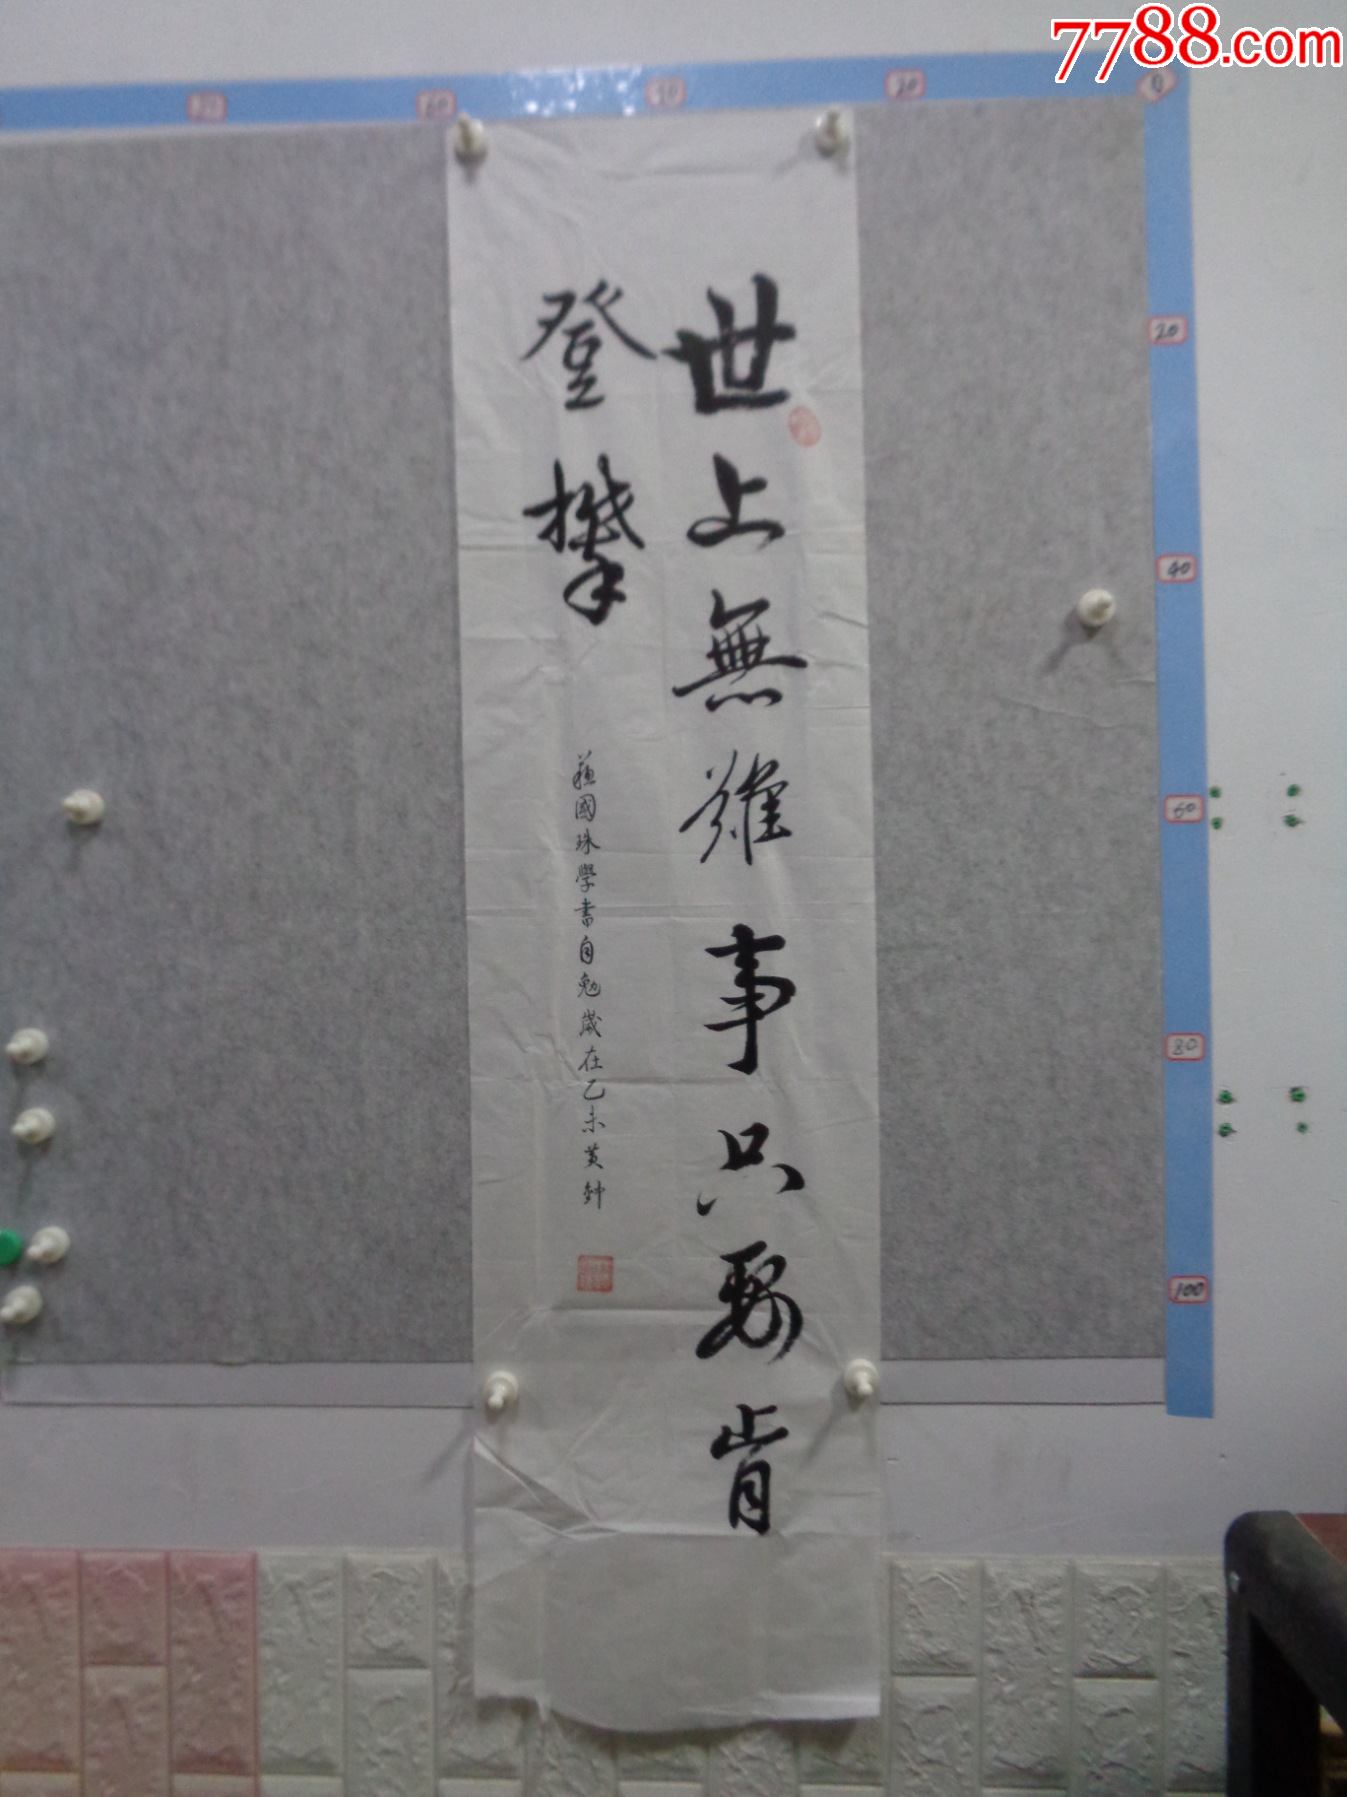 7788.com
70
60
40
20
0
20
40
60
80
100
世上無難事只要肯
登攀
蘇國珠學書自勉歲在乙未黃鐘